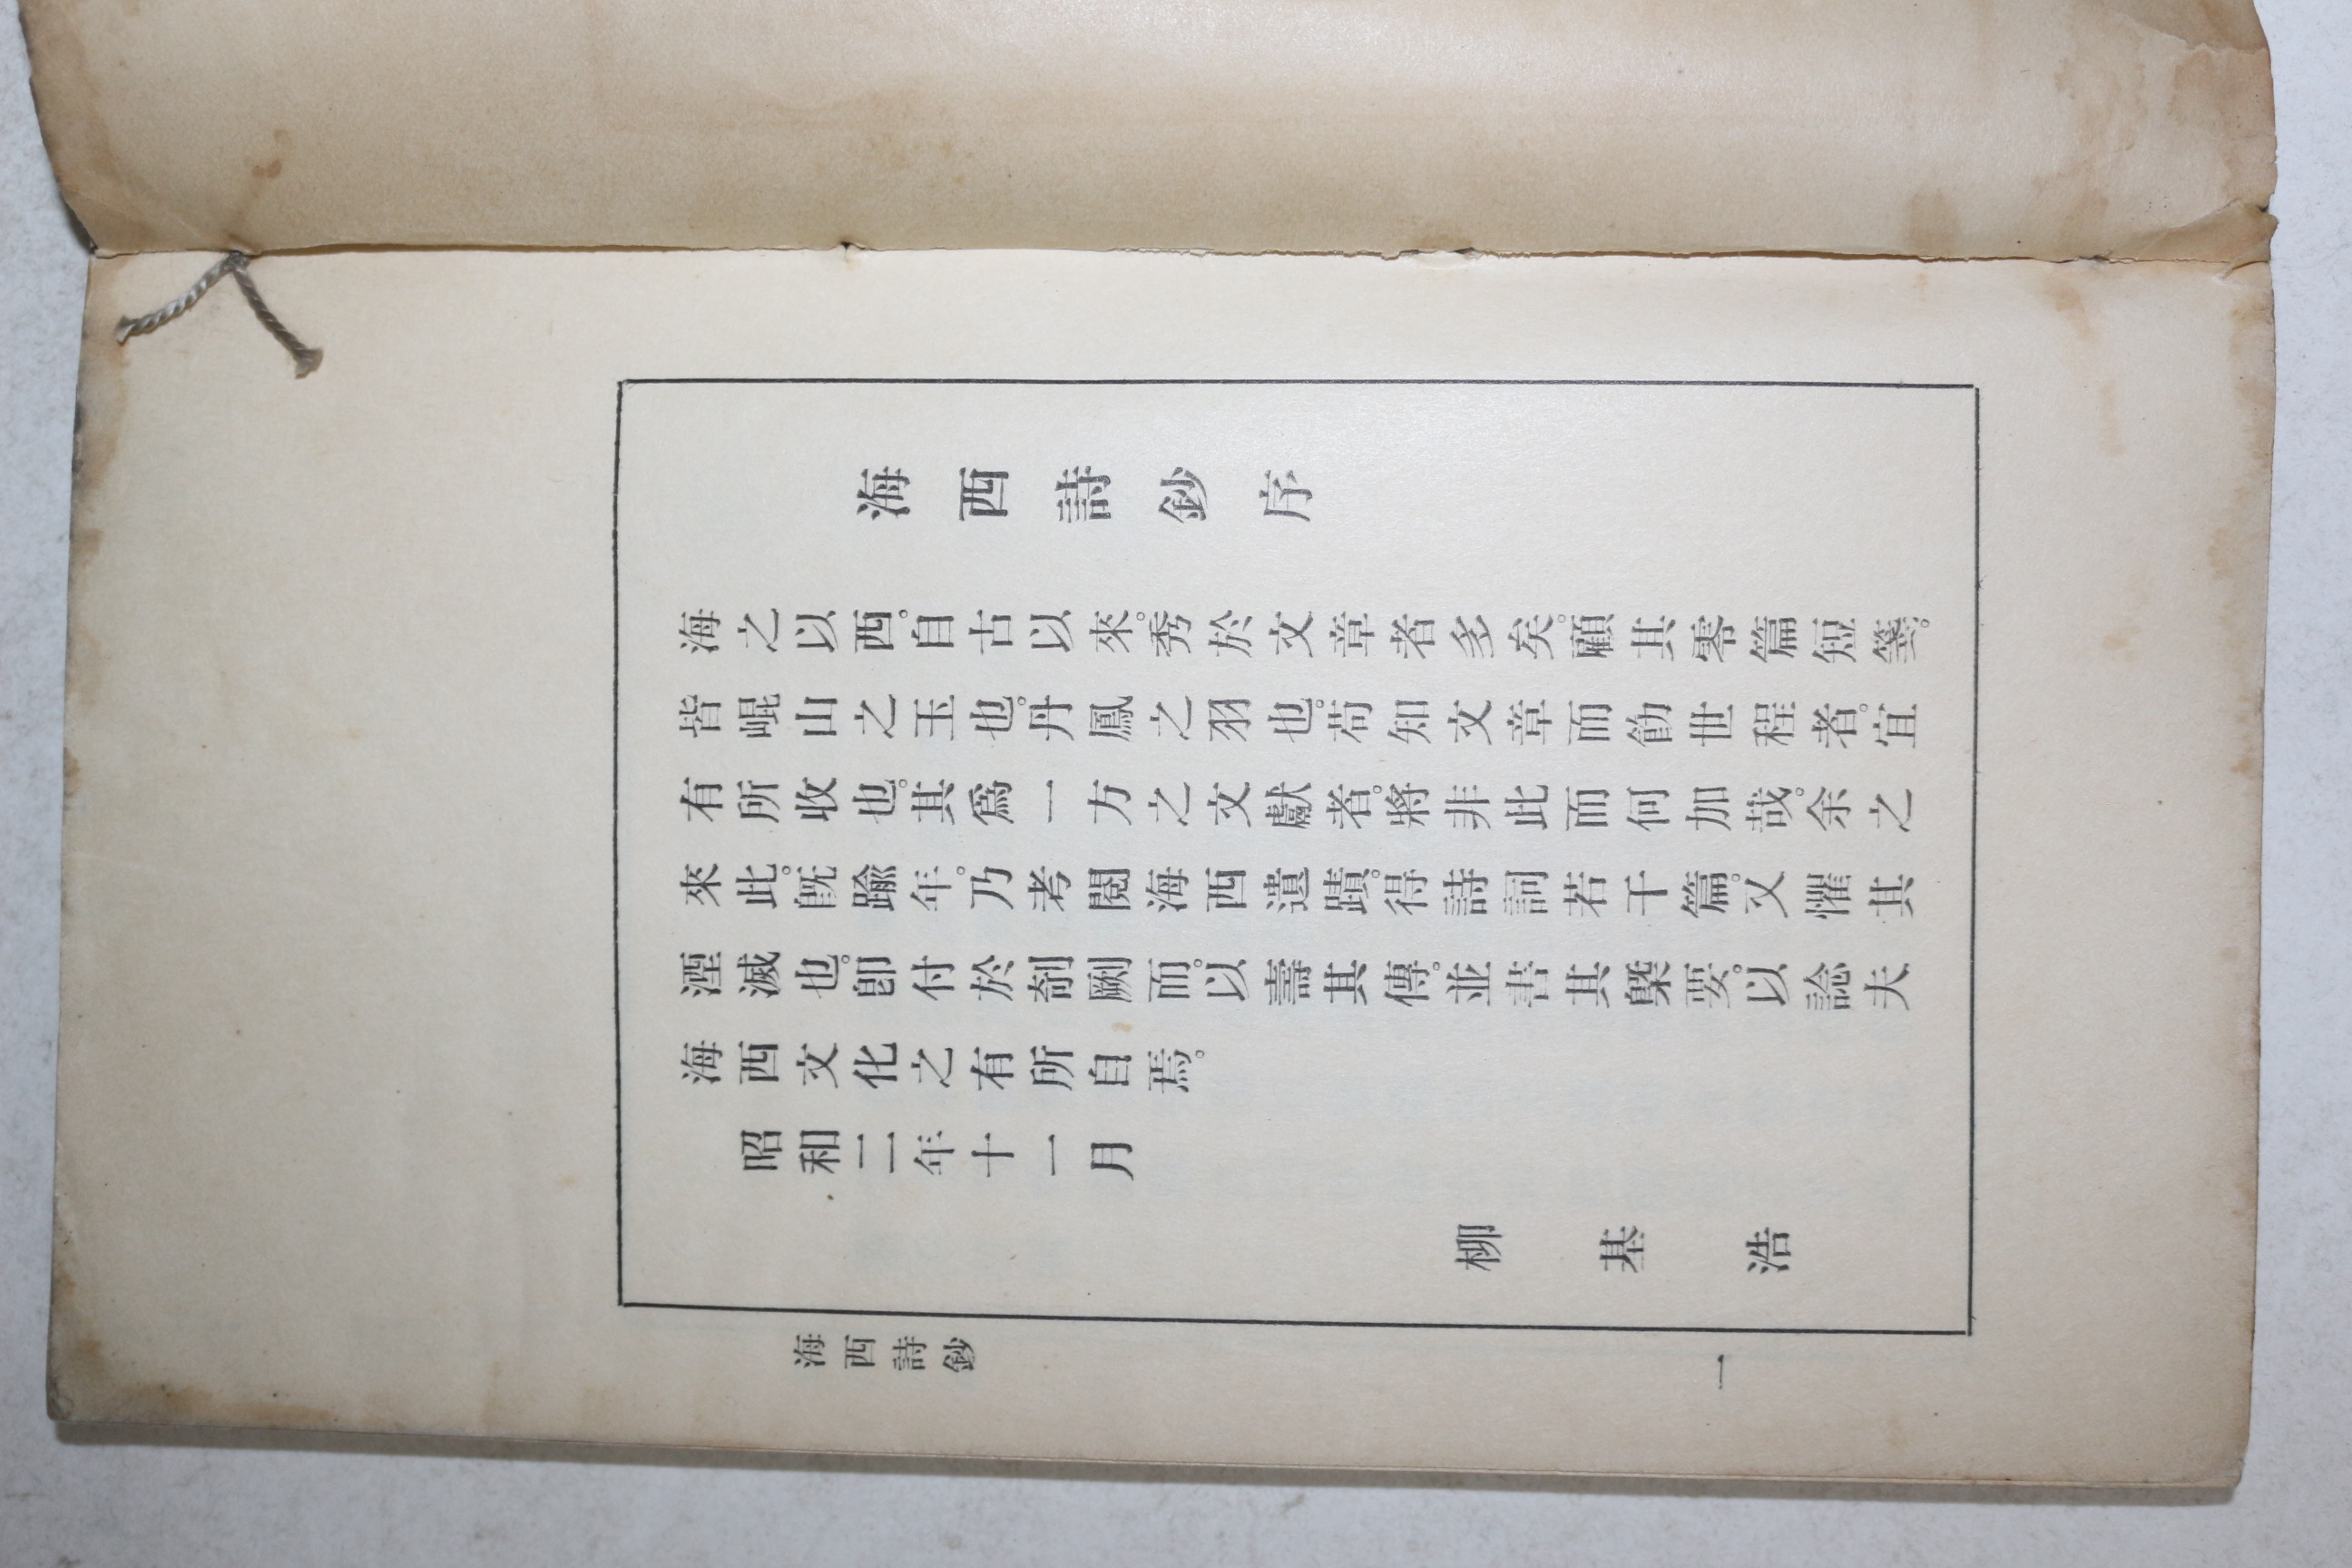 海西詩鈔序
海之以西。自古以來。秀於文章者多矣。顧其零篇短箋。
皆崐山之玉也。丹鳳之羽也。苟知文章而飭世程者。宜
有所收也。其爲一方之文獻者。將非此而何加哉。余之
來此。旣踰年。乃考閱海西遺蹟。得詩詞若干篇。又懼其
湮滅也。卽付於剞劂而。以壽其傳。並書其槩要。以諗夫
海西文化之有所自焉。
昭和二年十一月
柳基浩
海西詩鈔
一